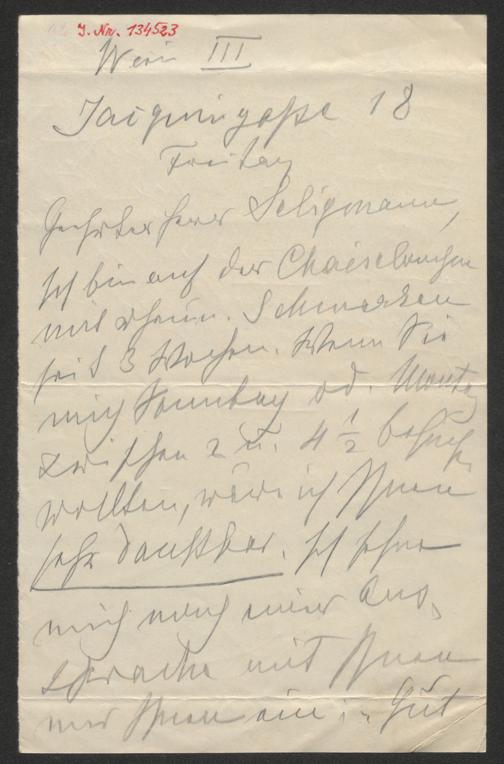 J. Nr. 134523
Wien III
Jacquingasse 18
Freitag
Geehrter Herr Seligmann,
Ich bin auf der Chaiselongue
mit rheum. Schmerzen
seit 3 Wochen. Wenn Sie
mich Sonntag od. Montag
zwischen 2 u. 4 1/2 besuchen
wollten, wäre ich Ihnen
sehr dankbar. Ich sehne
mich nach einer Aus-
sprache mit Ihnen
Ihnen ein: "Gut